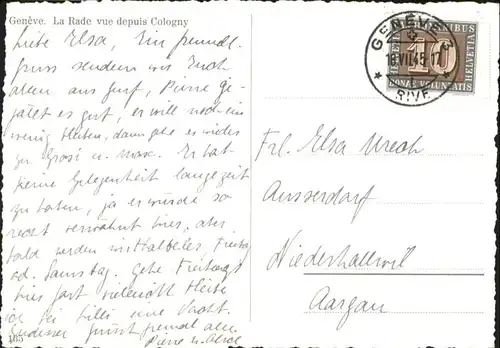 Genève. La Rade vue depuis Cologny
Liebe Elsa, Ein freundl.
Gruss senden wir Euch
allen aus Genf, Pierre ge-
fällt es gut, er will noch ein
wenig bleiben, dann gehe es wieder
zu Grosi u. Max. Er hat
keine Gelegenheit langezeit
zu haben, ja er würde so
recht verwöhnt hier, aber
bald werden wir
od. Samstag. Gehe Freitags
hier fort vielleicht bleibe
ich bei Lilli eine Nacht.
grüsst freundl. allen
Pierre u.
165
GENÈVE 3
18.VII.45-17
RIVE
HELVETIA
10
HELVETIA
DONAE VOLUNTATIS
Frl. Elsa Urech
Ausserdorf
Niederhallwil
Aargau